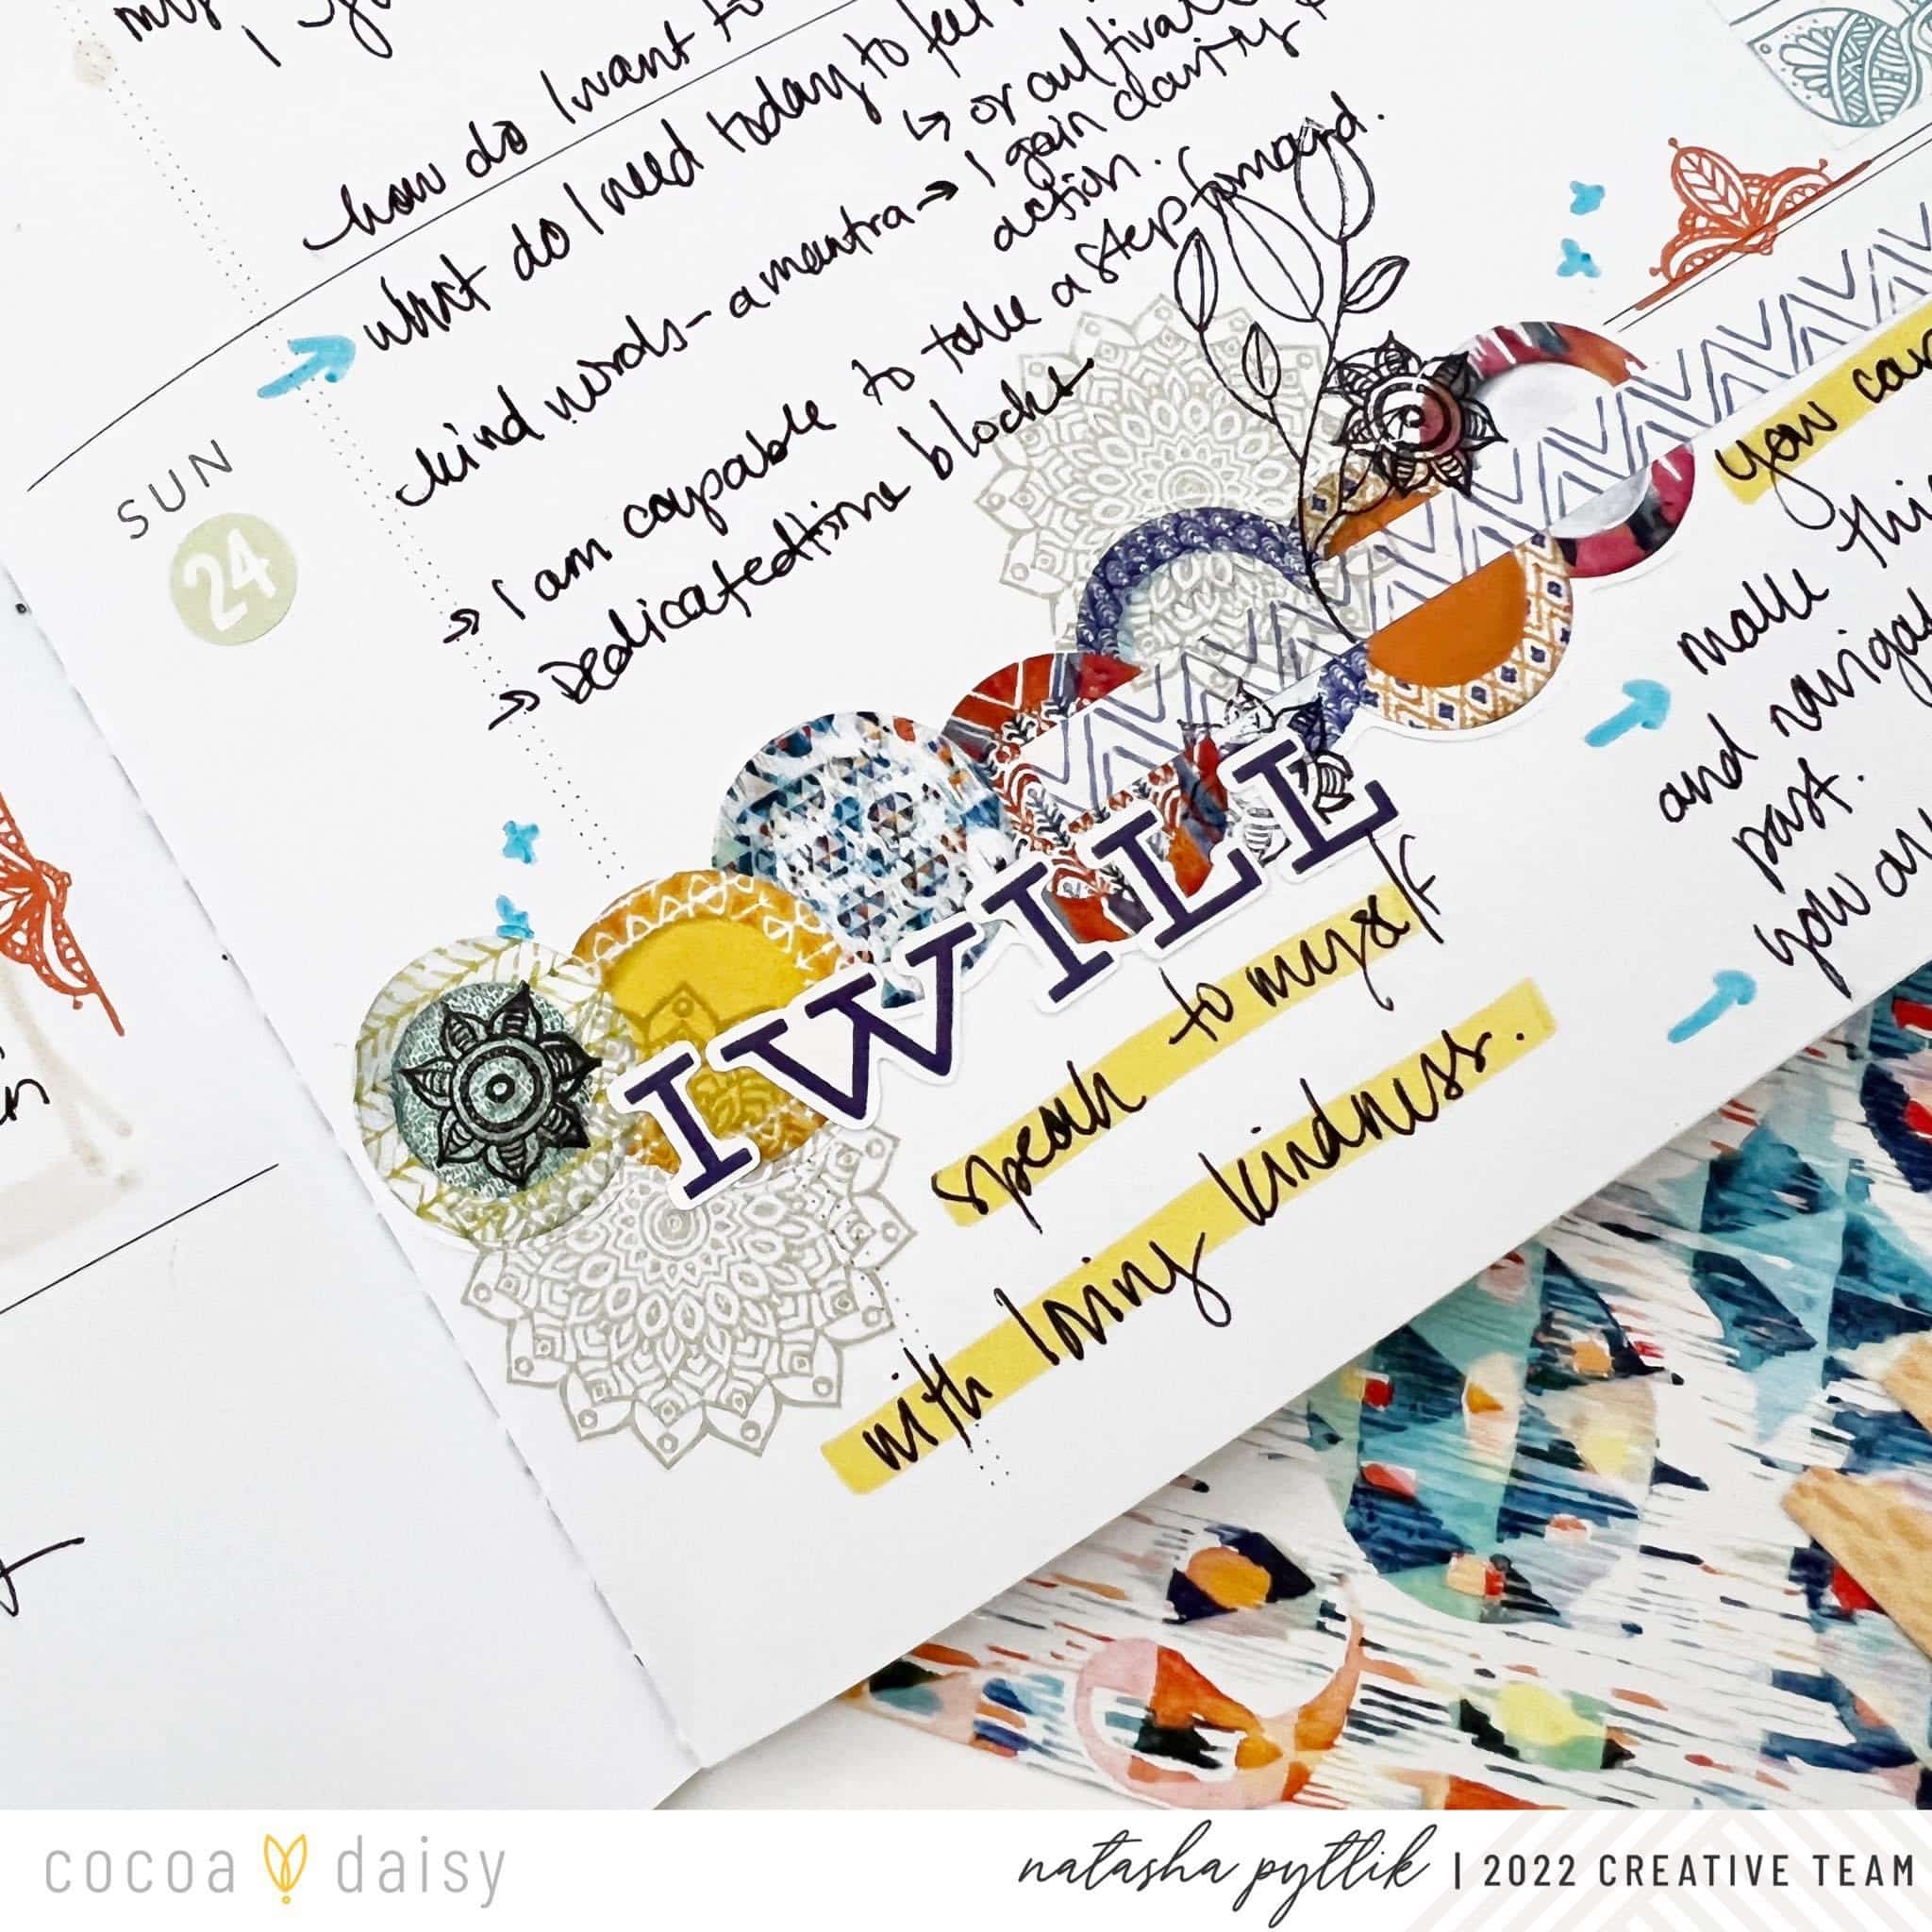 my
I
how do I want to
what do I need today to feel
↳ or cultivat
kind words - a mantra → I gain clarity
action.
→ I am capable to take a step forward.
→ Dedicated time blocks
SUN
24
I WILL
speak to myself
with loving kindness.
you can
make this
and naviga
past.
you a
cocoa daisy
natasha pyttlik | 2022 CREATIVE TEAM